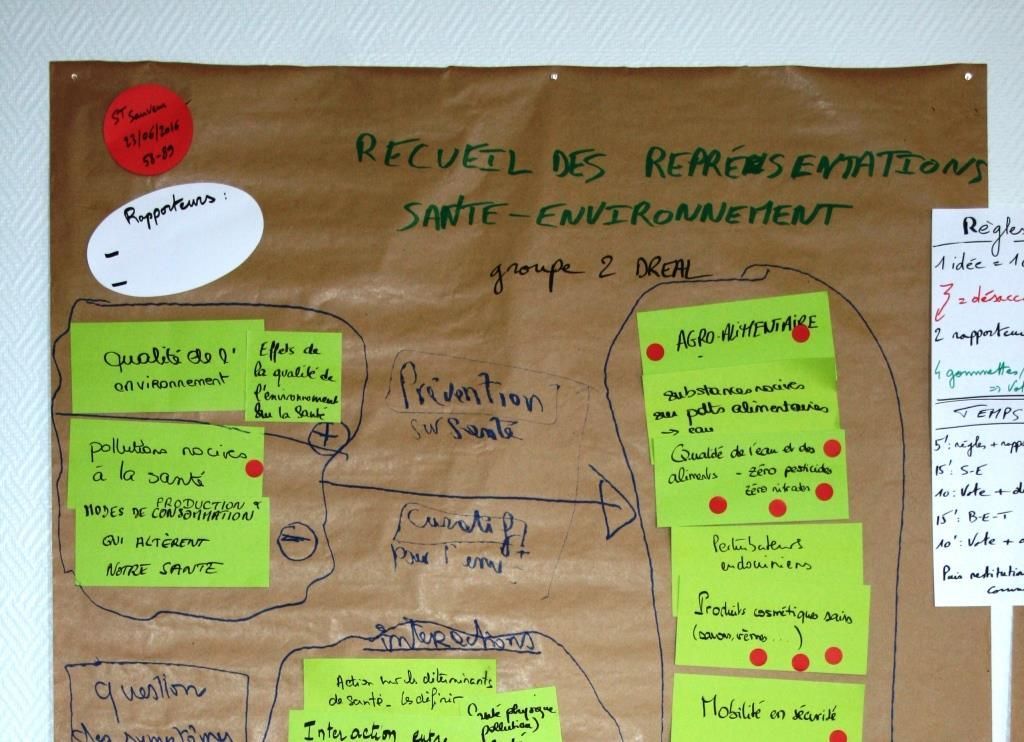 ST Sauveur
23/06/2016
58-89
RECUEIL DES REPRÉSENTATIONS
SANTE-ENVIRONNEMENT
groupe 2 DREAL
Rapporteurs :
-
-
qualité de l'
environnement
Effets de
la qualité de
l'environnement
sur la santé
+
pollutions nocives
à la santé
PRODUCTION &
MODES DE CONSOMMATION
QUI ALTÈRENT
NOTRE SANTE
-
Prévention
sur Santé
Curatif
pour l'envt
AGRO-ALIMENTAIRE
substances nocives
sur pdts alimentaires
→ eau
Qualité de l'eau et des
aliments - zéro pesticides
zéro nitrates
Perturbateurs
endocriniens
Produits cosmétiques sains
(savons, crèmes ...)
Mobilité en sécurité
interactions
Action sur les déterminants
de santé - les définir
Interaction entre
physique
pollution)
question
des symptômes
Règles
1 idée = 1
= désacc
2 rapporteu
4 gommettes/
=> Vot
TEMPS
5' : règles + rapp
15' S-E
10' : Vote + d
15' : B-E-T
10' : Vote + d
Puis restitution
comm